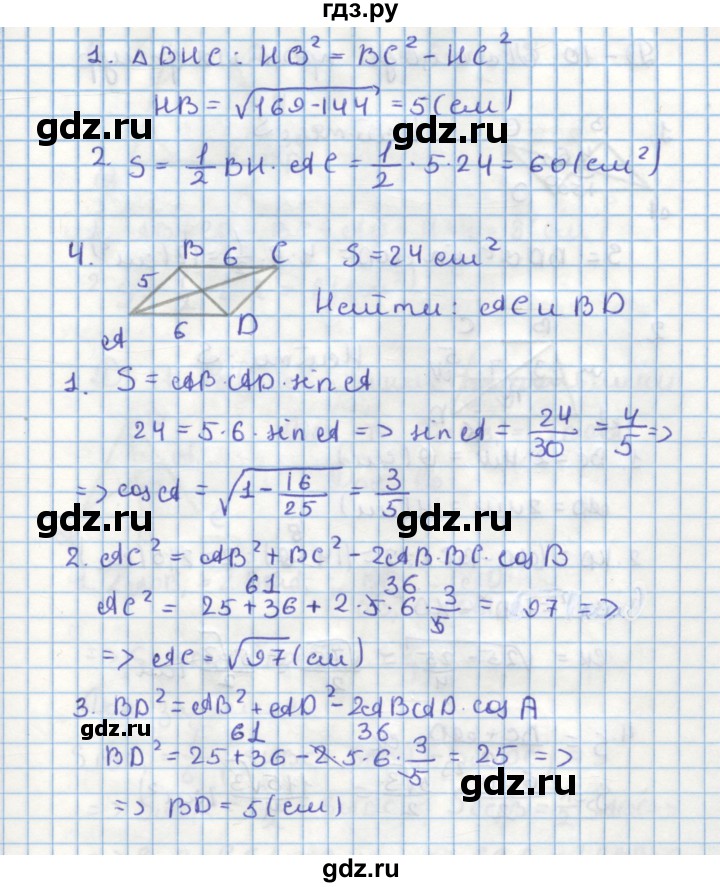 гдз.ру
1. ΔBHC : HB² = BC² - HC²
HB = √169-144 = 5 (см)
gdz.ru gdz.ru
2. S = 1/2 BH · AC = 1/2 · 5 · 24 = 60 (см²)
4. B 6 C S = 24 см²
5
Найти: AC и BD
A 6 D
1. S = AB · AD · sin A
24 = 5 · 6 · sin A => sin A = 24/30 = 4/5 =>
=> cos A = √1 - 16/25 = 3/5
gdz.ru gdz.ru
2. AC² = AB² + BC² - 2AB · BC · cos B
61 36
AC² = 25 + 36 + 2 · 5 · 6 · 3/5 = 97 =>
=> AC = √97 (см)
3. BD² = AB² + AD² - 2AB AD · cos A
gdz.ru
61 36
BD² = 25 + 36 - 2 · 5 · 6 · 3/5 = 25 =>
gdz.ru
=> BD = 5 (см)
gdz.ru